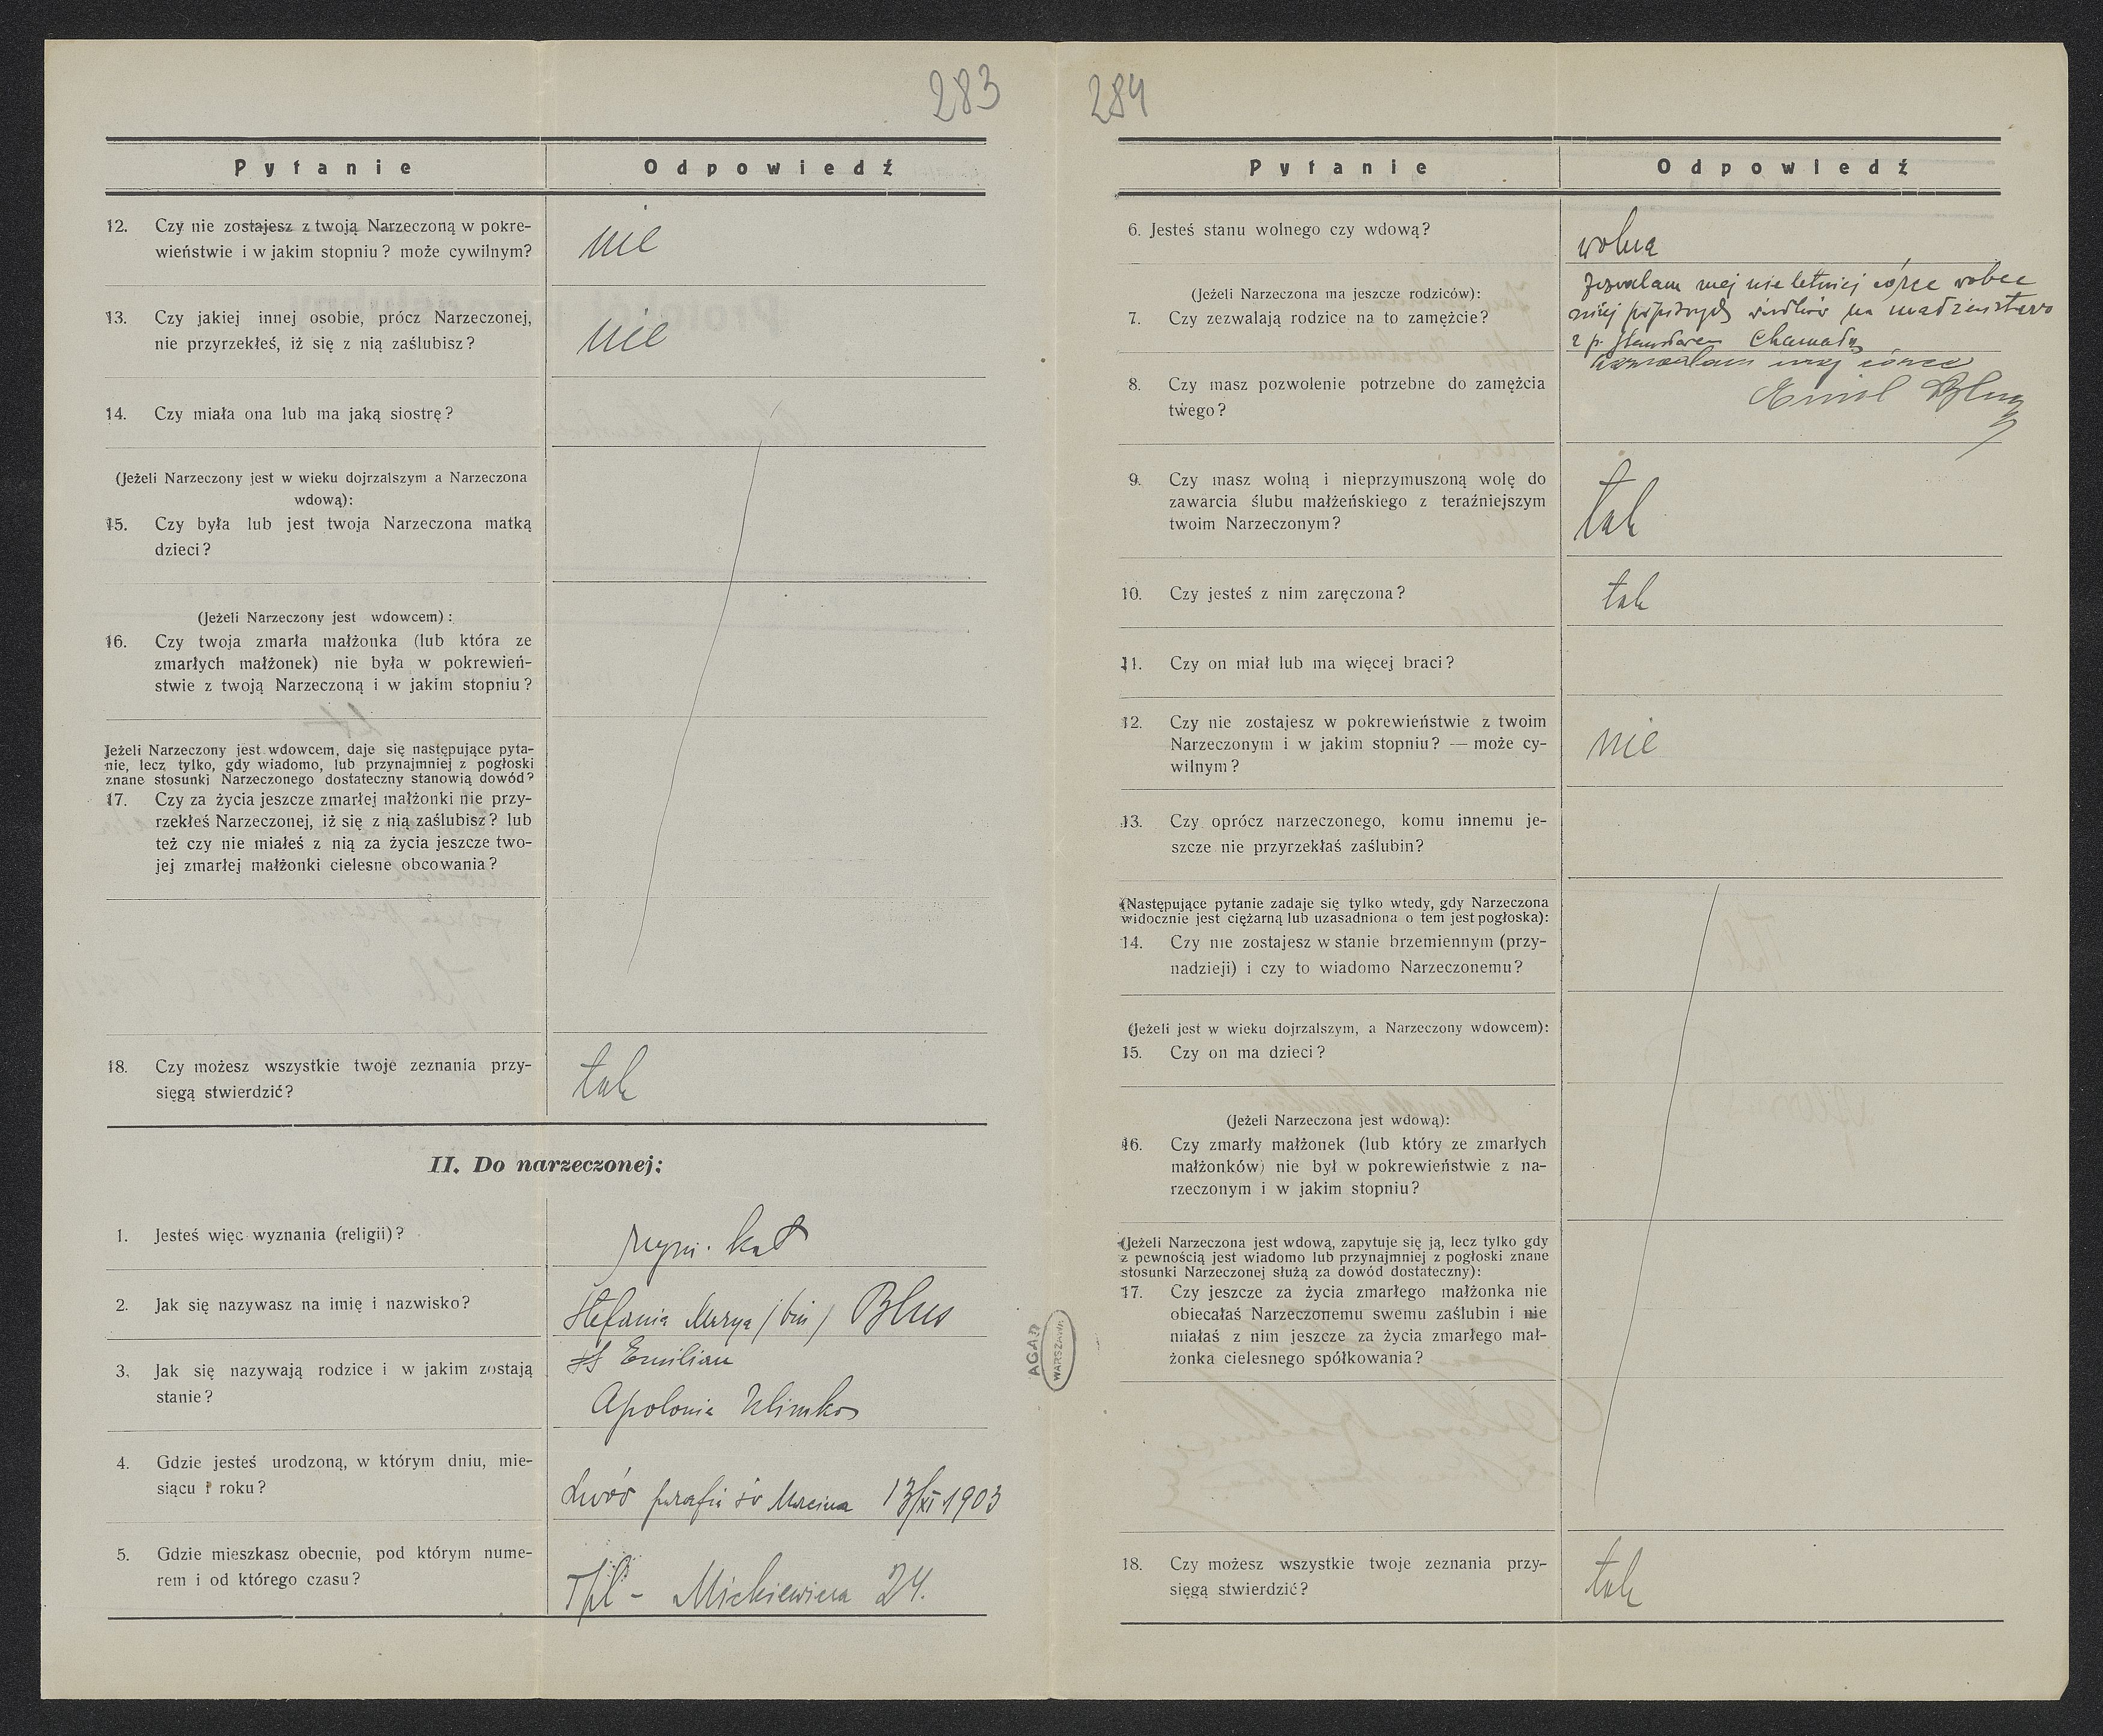 283
Pytanie Odpowiedź
12. Czy nie zostajesz z twoją Narzeczoną w pokre-
wieństwie i w jakim stopniu? może cywilnym?
nie
13. Czy jakiej innej osobie, prócz Narzeczonej,
nie przyrzekłeś, iż się z nią zaślubisz?
nie
14. Czy miała ona lub ma jaką siostrę?
(Jeżeli Narzeczony jest w wieku dojrzalszym a Narzeczona
wdową):
15. Czy była lub jest twoja Narzeczona matką
dzieci?
(Jeżeli Narzeczony jest wdowcem):
16. Czy twoja zmarła małżonka (lub która ze
zmarłych małżonek) nie była w pokrewień-
stwie z twoją Narzeczoną i w jakim stopniu?
Jeżeli Narzeczony jest wdowcem, daje się następujące pyta-
nie, lecz tylko, gdy wiadomo, lub przynajmniej z pogłoski
znane stosunki Narzeczonego dostateczny stanowią dowód?
17. Czy za życia jeszcze zmarłej małżonki nie przy-
rzekłeś Narzeczonej, iż się z nią zaślubisz? lub
też czy nie miałeś z nią za życia jeszcze two-
jej zmarłej małżonki cielesne obcowania?
18. Czy możesz wszystkie twoje zeznania przy-
sięgą stwierdzić?
tak
II. Do narzeczonej:
1. Jesteś więc wyznania (religii)?
rzym. kat
2. Jak się nazywasz na imię i nazwisko?
Stefania Marya (bin) Blus
3. Jak się nazywają rodzice i w jakim zostają
stanie?
Emilian
Apolonia Klimko
4. Gdzie jesteś urodzoną, w którym dniu, mie-
siącu i roku?
Lwów parafia św Marcina 13/XI 1903
5. Gdzie mieszkasz obecnie, pod którym nume-
rem i od którego czasu?
Tpl - Mickiewicza 24.
AGAD
WARSZAWA
284
Pytanie Odpowiedź
6. Jesteś stanu wolnego czy wdową?
wolna
(Jeżeli Narzeczona ma jeszcze rodziców):
7. Czy zezwalają rodzice na to zamęście?
Zezwalam mej nieletniej córce wobec
niżej podpisanych świadków na małżeństwo
z p. Stanisławem
zezwalam mej córce
Emil Blus
8. Czy masz pozwolenie potrzebne do zamężcia
twego?
9. Czy masz wolną i nieprzymuszoną wolę do
zawarcia ślubu małżeńskiego z teraźniejszym
twoim Narzeczonym?
tak
10. Czy jesteś z nim zaręczona?
tak
11. Czy on miał lub ma więcej braci?
12. Czy nie zostajesz w pokrewieństwie z twoim
Narzeczonym i w jakim stopniu? — może cy-
wilnym?
nie
13. Czy oprócz narzeczonego, komu innemu je-
szcze nie przyrzekłaś zaślubin?
(Następujące pytanie zadaje się tylko wtedy, gdy Narzeczona
widocznie jest ciężarną lub uzasadniona o tem jest pogłoska):
14. Czy nie zostajesz w stanie brzemiennym (przy-
nadzieji) i czy to wiadomo Narzeczonemu?
(Jeżeli jest w wieku dojrzalszym, a Narzeczony wdowcem):
15. Czy on ma dzieci?
(Jeżeli Narzeczona jest wdową):
16. Czy zmarły małżonek (lub który ze zmarłych
małżonków) nie był w pokrewieństwie z na-
rzeczonym i w jakim stopniu?
(Jeżeli Narzeczona jest wdową, zapytuje się ją, lecz tylko gdy
z pewnością jest wiadomo lub przynajmniej z pogłoski znane
stosunki Narzeczonej służą za dowód dostateczny):
17. Czy jeszcze za życia zmarłego małżonka nie
obiecałaś Narzeczonemu swemu zaślubin i nie
miałaś z nim jeszcze za życia zmarłego mał-
żonka cielesnego spółkowania?
18. Czy możesz wszystkie twoje zeznania przy-
sięgą stwierdzić?
tak